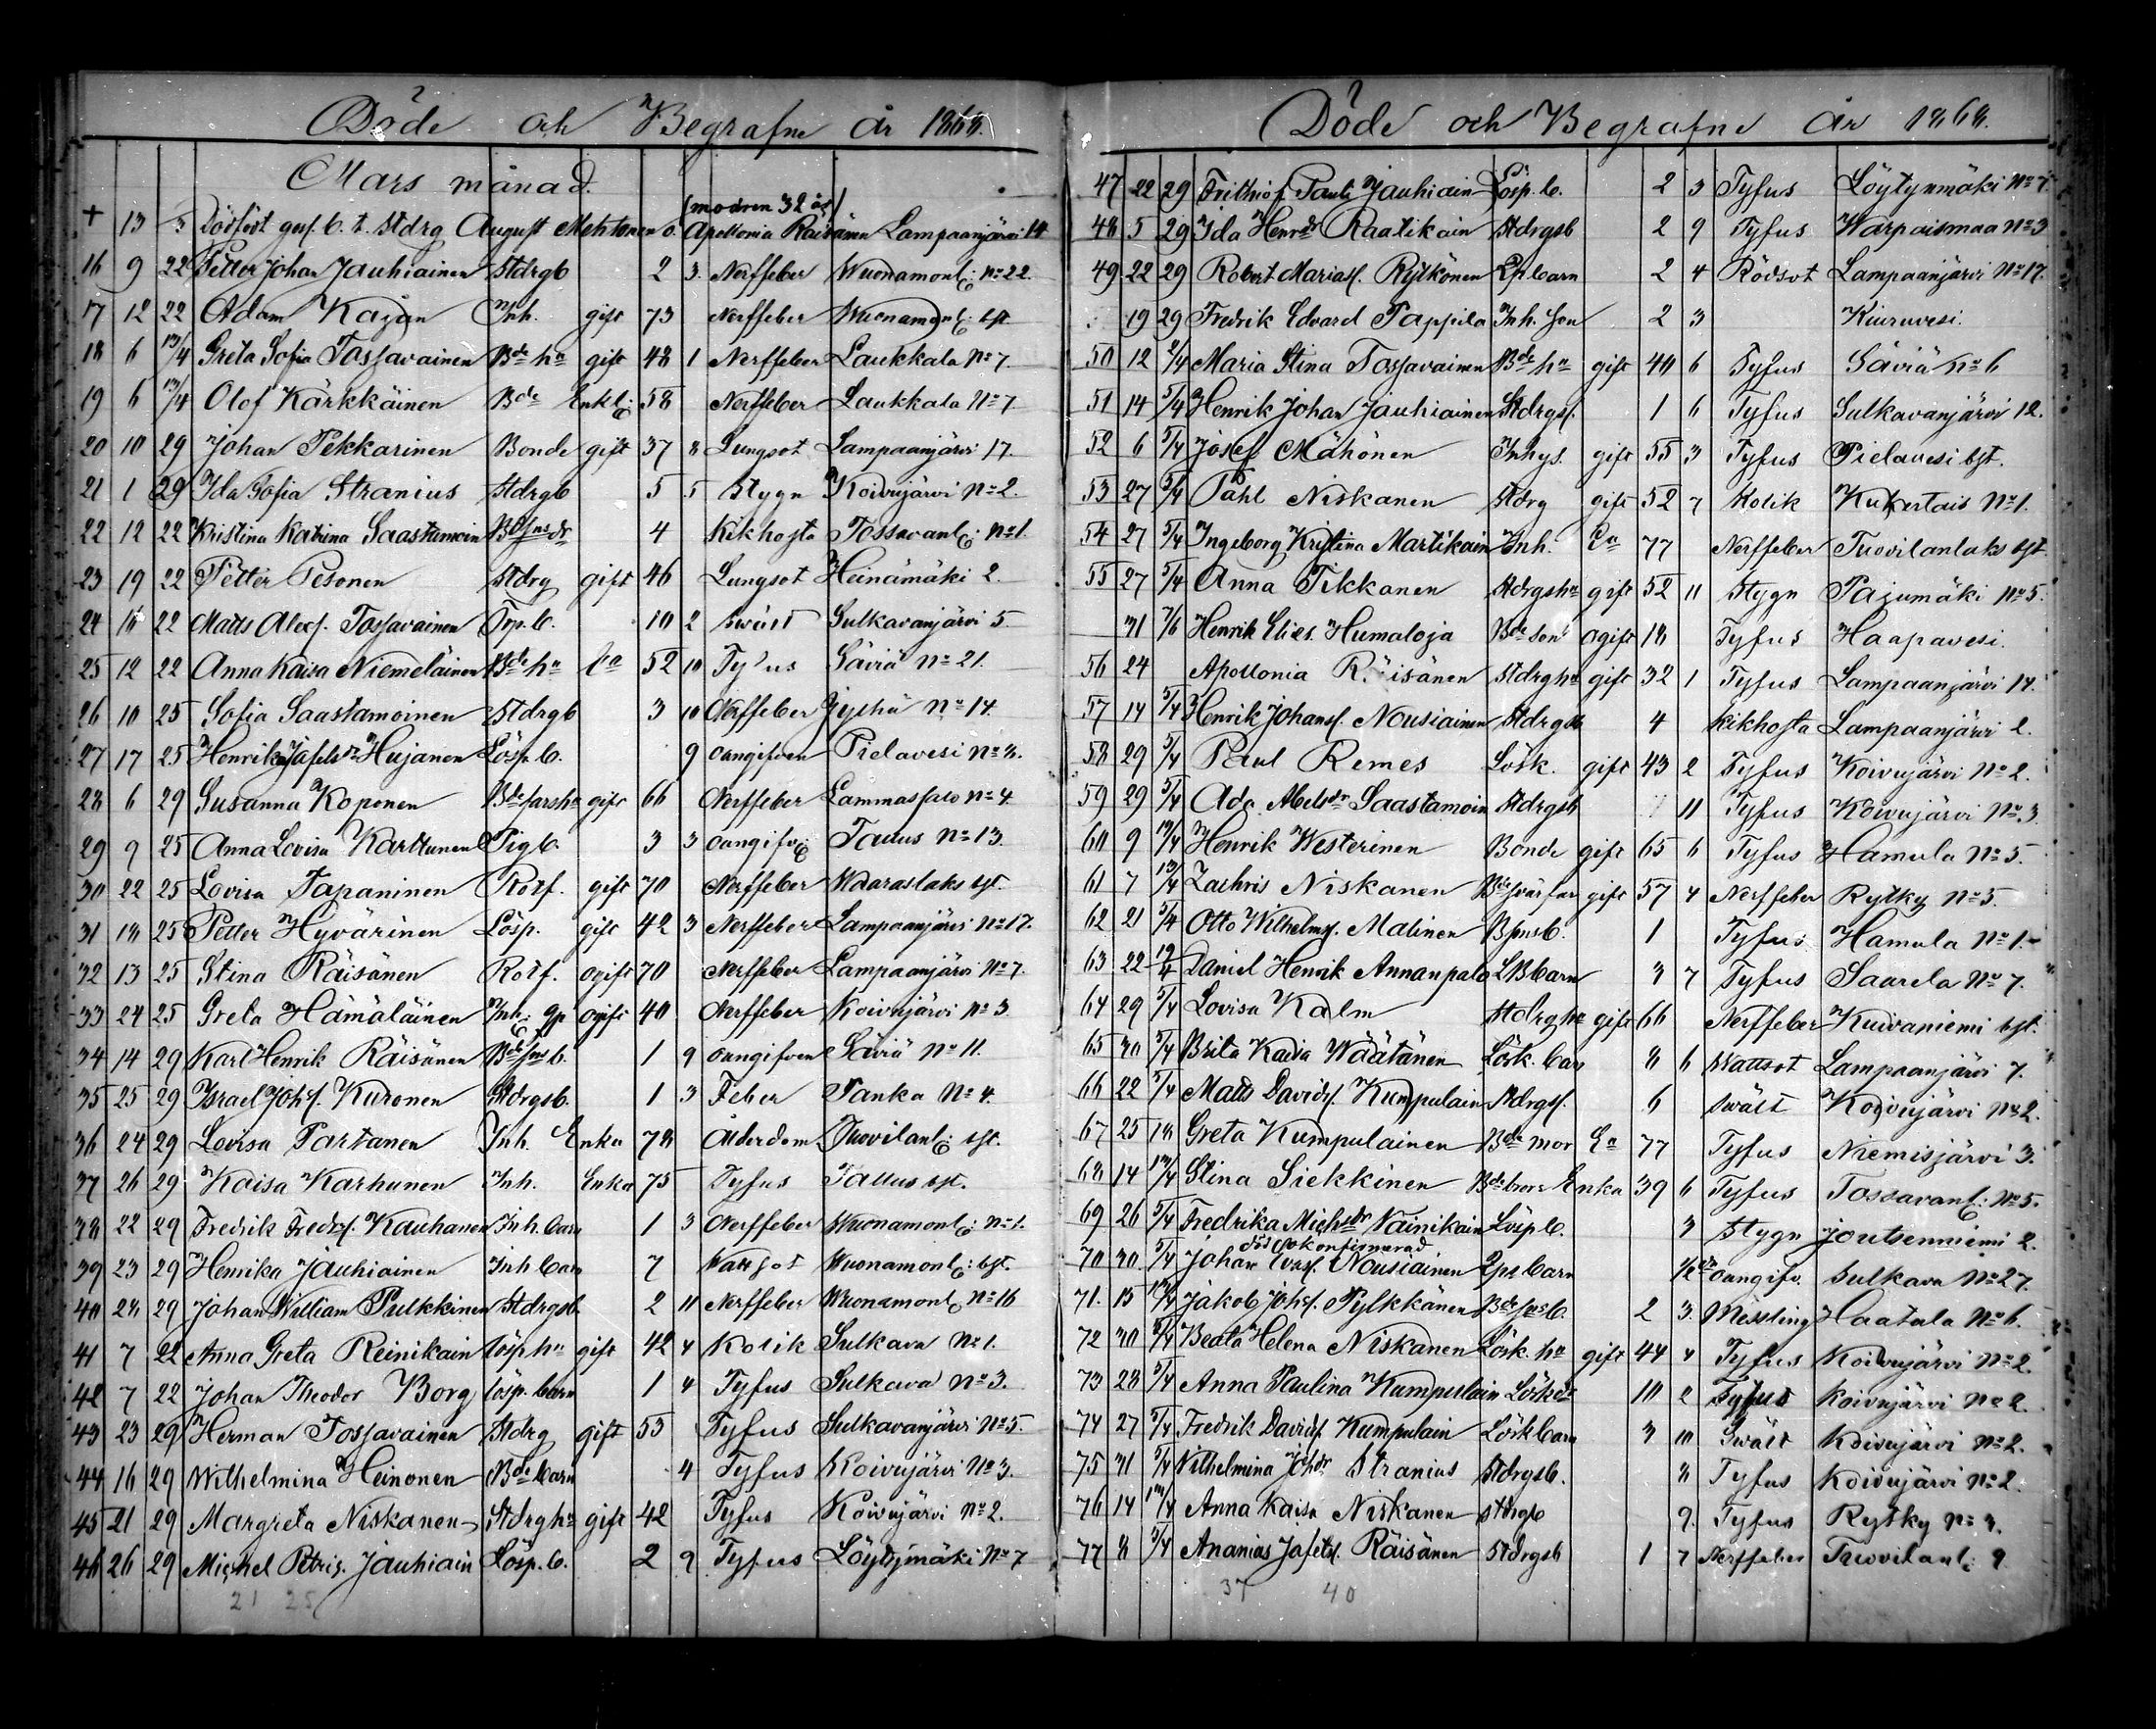 Döde och Begrafne år 1868.
Mars månad.
(modren 32 år)
+ 13 5 Dödfödt gosf. b. t. Stdrg August Mehtonen o. Apollonia Räisänen Lampaanjärvi 14
16 9 22 Petter Johan Jauhiainen Stdrgb 2 3 Nerffeber Wuonamonl: No 22.
17 12 22 Adam Kajan Inh. gift 73 Nerffeber Wuonamonl: bst.
18 6 13/4 Greta Sofia Tossavainen Bde hu gift 48 1 Nerffeber Laukkala No 7.
19 6 13/4 Olof Kärkkäinen Bde Enkl: 58 Nerffeber Laukkala No 7.
20 10 29 Johan Pekkarinen Bonde gift 37 8 Lungsot Lampaanjärvi 17.
21 1 29 Ida Sofia Stranius Stdrgb 5 5 Stygn Koivujärvi No 2.
22 12 22 Kristina Katrina Saastamoin 4 Kikhosta Tossavanl: No 1.
23 19 22 Petter Pesonen Stdrg gift 46 Lungsot Heinämäki 2.
24 18 22 Matts Alexs. Tossavainen Trp. b. 10 2 Swält Sulkavanjärvi 5.
25 12 22 Anna Kaisa Niemeläinen Bde hu 52 10 Tyfus Säviä No 21.
26 10 25 Sofia Saastamoinen Stdrgb 3 10 Nerffeber Jylhä No 14.
27 17 25 Henrika Jafetsdr Hujanen Lösp. b. 9 oangifven Pielavesi No 3.
28 6 29 Susanna Koponen Bde farshu gift 66 Nerffeber Lammassalo No 4.
29 9 25 Anna Lovisa Karttunen Pig b. 3 3 oangifv: Taulus No 13.
30 22 25 Lovisa Tapaninen Rotf. gift 70 Nerffeber Waaraslaks bst.
31 18 25 Petter Hyvärinen Lösp. gift 42 3 Nerffeber Lampaanjärvi No 17.
32 13 25 Stina Räisänen Rotf. ogift 70 Nerffeber Lampaanjärvi No 7.
33 24 25 Greta Hämäläinen Inh: qp ogift 40 Nerffeber Koivujärvi No 3.
34 14 29 Karl Henrik Räisänen Bdesns b. 1 9 oangifven Säviä No 11.
35 25 29 Israel Johs. Kuronen Stdrgsb. 1 3 Feber Panka No 4.
36 24 29 Lovisa Partanen Inh. Enka 78 Ålderdom Tuovilanl: bst.
37 26 29 Kaisa Karhunen Inh. Enka 75 Tyfus Tallus bst.
38 22 29 Fredrik Fredrs. Kauhanen Inh. barn 1 3 Nerffeber Wuonamonl: No 1.
39 23 29 Henrika Jauhiainen Inh barn 7 Wattsot Wuonamonl: bst.
40 28 29 Johan William Pulkkinen Stdrgsb. 2 11 Nerffeber Wuonamonl: No 16
41 7 22 Anna Greta Reinikain Lösp hu gift 42 4 Kolik Sulkava No 1.
42 7 22 Johan Theodor Borg Lösp. barn 1 4 Tyfus Sulkava No 3.
43 23 29 Herman Tossavainen Stdrg gift 53 Tyfus Sulkavanjärvi No 5.
44 16 29 Wilhelmina Heinonen Bde barn 4 Tyfus Koivujärvi No 3.
45 21 29 Margreta Niskanen Stdrghu gift 42 Tyfus Koivujärvi No 2.
46 26 29 Michel Petris. Jauhiain Lösp. b. 2 9 Tyfus Löytynmäki No 7
21 25
Döde och Begrafne år 1868.
47 22 29 Frithiof Pauls Jauhiain Lösp. b. 2 3 Tyfus Löytynmäki No 7.
48 5 29 Ida Henrdr Raatikain Stdrgsb 2 9 Tyfus Warpaismaa No 3
49 22 29 Robert Marias. Rytkönen Lp barn 2 4 Rödsot Lampaanjärvi No 17.
19 29 Fredrik Edvard Pappila Inh. son 2 3 Kiuruvesi.
50 12 2/4 Maria Stina Tossavainen Bde hu gift 40 6 Tyfus Säviä No 6
51 14 5/4 Henrik Johan Jauhiainen Stdrgs. 1 6 Tyfus Sulkavanjärvi 12.
52 6 5/4 Josef Mähönen Inhys. gift 55 3 Tyfus Pielavesi bst.
53 27 5/4 Påhl Niskanen Stdrg gift 52 7 Kolik No 1.
54 27 5/4 Ingeborg Kristina Martikain Inh. Ea 77 Nerffeber Tuovilanlaks bst
55 27 5/4 Anna Tikkanen Stdrgshu gift 52 11 Stygn Pajumäki No 5.
31 7/6 Henrik Elies. Humaloja Bde son ogift 18 Tyfus Haapavesi.
56 24 Apollonia Räisänen Stdrghu gift 32 1 Tyfus Lampaanjärvi 14.
57 14 5/4 Henrik Johans. Nousiainen Stdrgsb 4 Kikhosta Lampaanjärvi 2.
58 29 5/4 Paul Remes Lösk. gift 43 2 Tyfus Koivujärvi No 2.
59 29 5/4 Ada Abelsdr Saastamoin Stdrgsb 11 Tyfus Koivujärvi No 3
60 9 19/4 Henrik Westerinen Bonde gift 65 6 Tyfus Hamula No 5.
61 7 13/4 Zachris Niskanen Bde svärfar gift 57 4 Nerffeber Rytky No 5.
62 21 5/4 Otto Wilhelms. Malinen Bsnsb. 1 Tyfus Hamula No 1.
63 22 19/4 Daniel Henrik Annanpalo LB barn 3 7 Tyfus Saarela No 7.
64 29 5/4 Lovisa Kalm Stdrghu gift 66 Nerffeber Kuivaniemi bst.
65 30 5/4 Brita Kaisa Wäätänen Lösk. barn 8 6 Wattsot Lampaanjärvi 7.
66 22 5/4 Matts Davids. Kumpulain Stdrgs. 6 Swält Koivujärvi No 2.
67 25 18 Greta Kumpulainen Bde mor Ea 77 Tyfus Niemisjärvi 3.
68 14 13/4 Stina Siekkinen Enka 39 6 Tyfus Tossavanl: No 5.
69 26 5/4 Fredrika Michsdr Vainikain Lösp b. 3 Stygn Joutsenniemi 2.
död okonfirmerad
70 30 5/4 Johan Evas. Nousiainen Lps barn 1/2 oangifv. Sulkava No 27.
71. 15 Jakob Johs. Pylkkänen Bdesns b. 2 3. Messling Haatala No 6.
72 30 5/4 Beata Helena Niskanen Lösk. hu gift 44 4 Tyfus Koivujärvi No 2.
73 28 5/4 Anna Paulina Kumpulain Löskdr 10 2 Tyfus Koivujärvi No 2.
74 27 5/4 Fredrik Davids. Kumpulain Lösk barn 3 10 Swält Koivujärvi No 2.
75 31 5/4 Wilhelmina Johdr Stranius Stdrgsb. 8 Tyfus Koivujärvi No 2.
76 14 Anna Kaisa Niskanen Stdrgb 9. Tyfus Rytky No 3.
77 8 5/4 Ananias Jafets. Räisänen Stdrgsb 1 7 Nerffeber Tuovilanl: 9
37 40